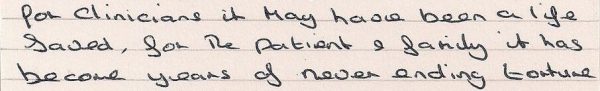 for clinicians it may have been a life
saved, for the patient & family it has
become years of never ending torture